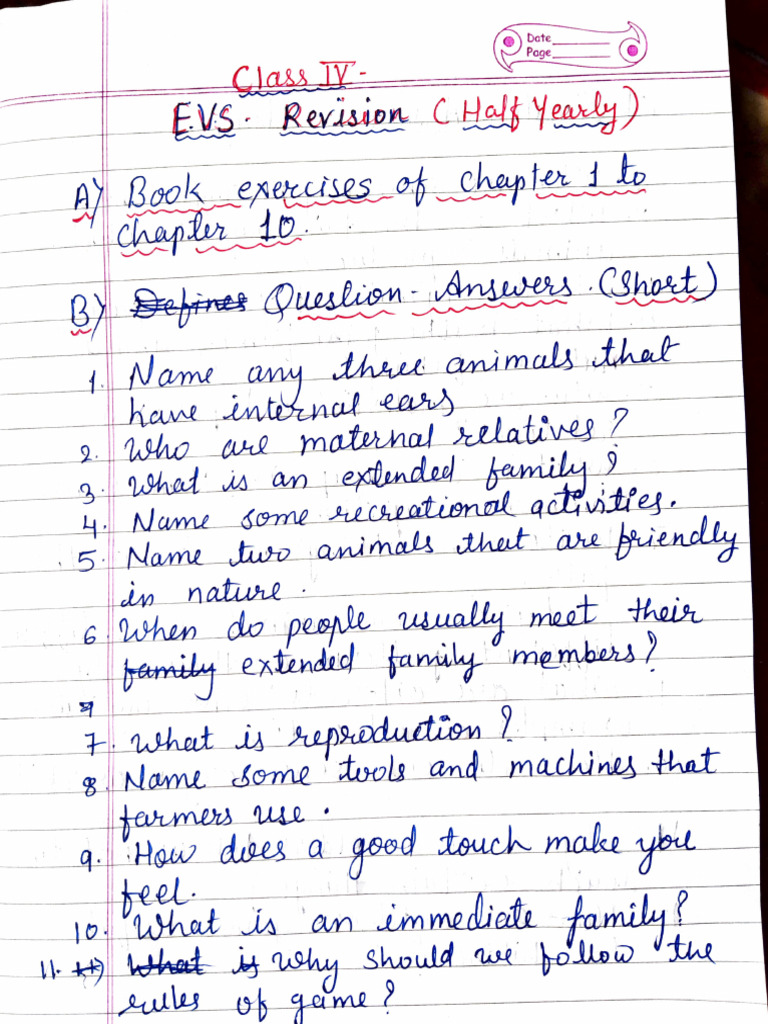 Date
Page
Class IV-
E.V.S. Revision (Half Yearly)
A) Book exercises of chapter 1 to
chapter 10.
B) Defines Question-Answers. (Short)
1. Name any three animals that
have internal ears
2. Who are maternal relatives?
3. What is an extended family?
4. Name some recreational activities.
5. Name two animals that are friendly
in nature.
6. When do people usually meet their
family extended family members?
7. What is reproduction?
8. Name some tools and machines that
farmers use.
9. How does a good touch make you
feel.
10. What is an immediate family?
11. What is Why should we follow the
rules of game?